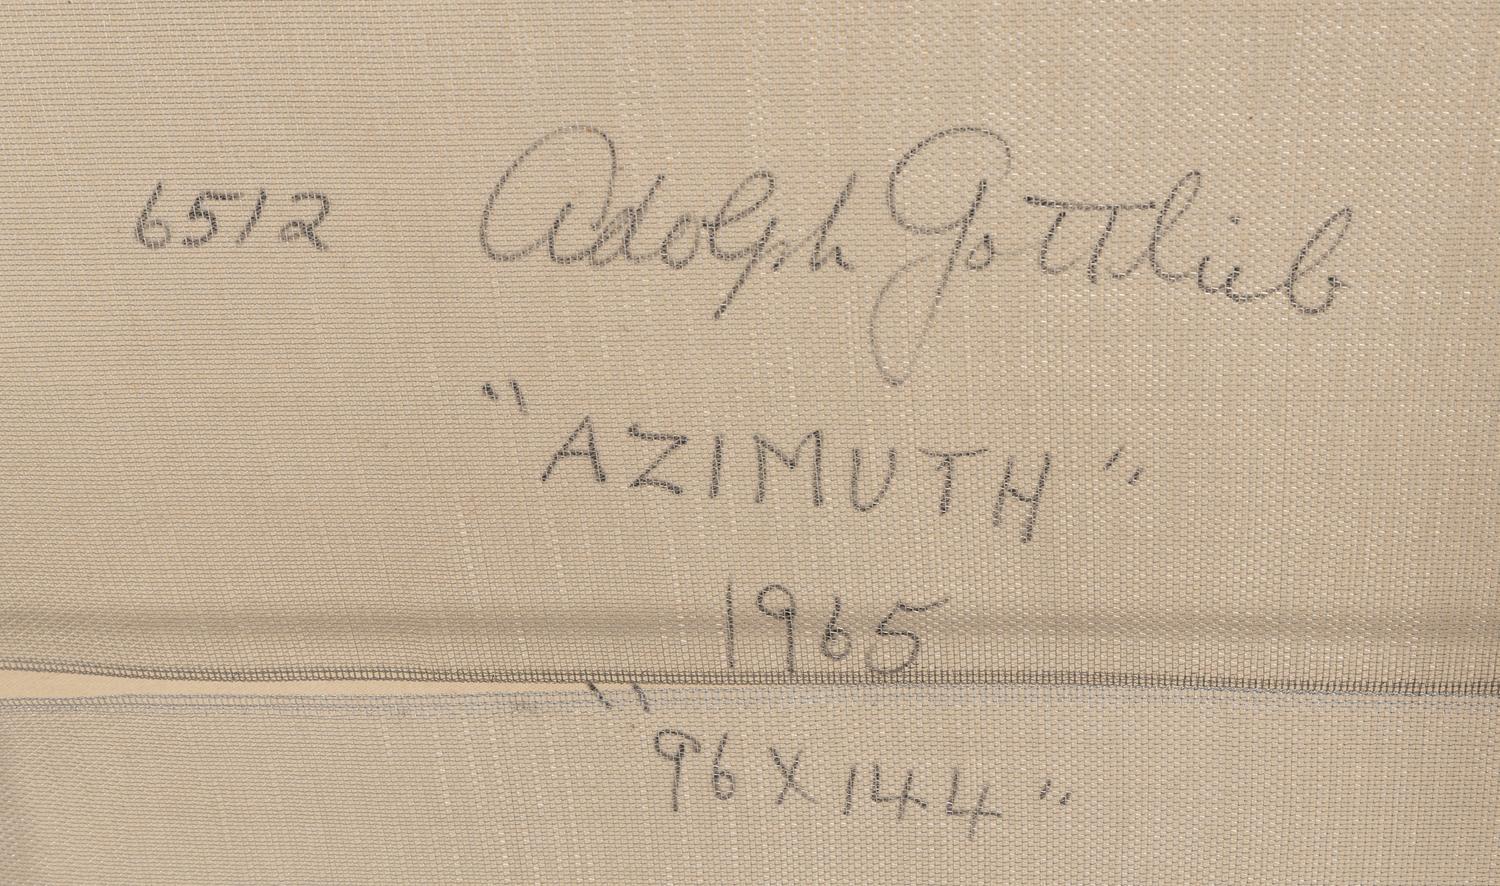 6512 Adolph Gottlieb
"AZIMUTH"
1965
"96 X 144"